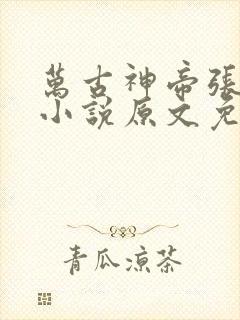 萬古神帝張
小說原文免
青瓜涼茶